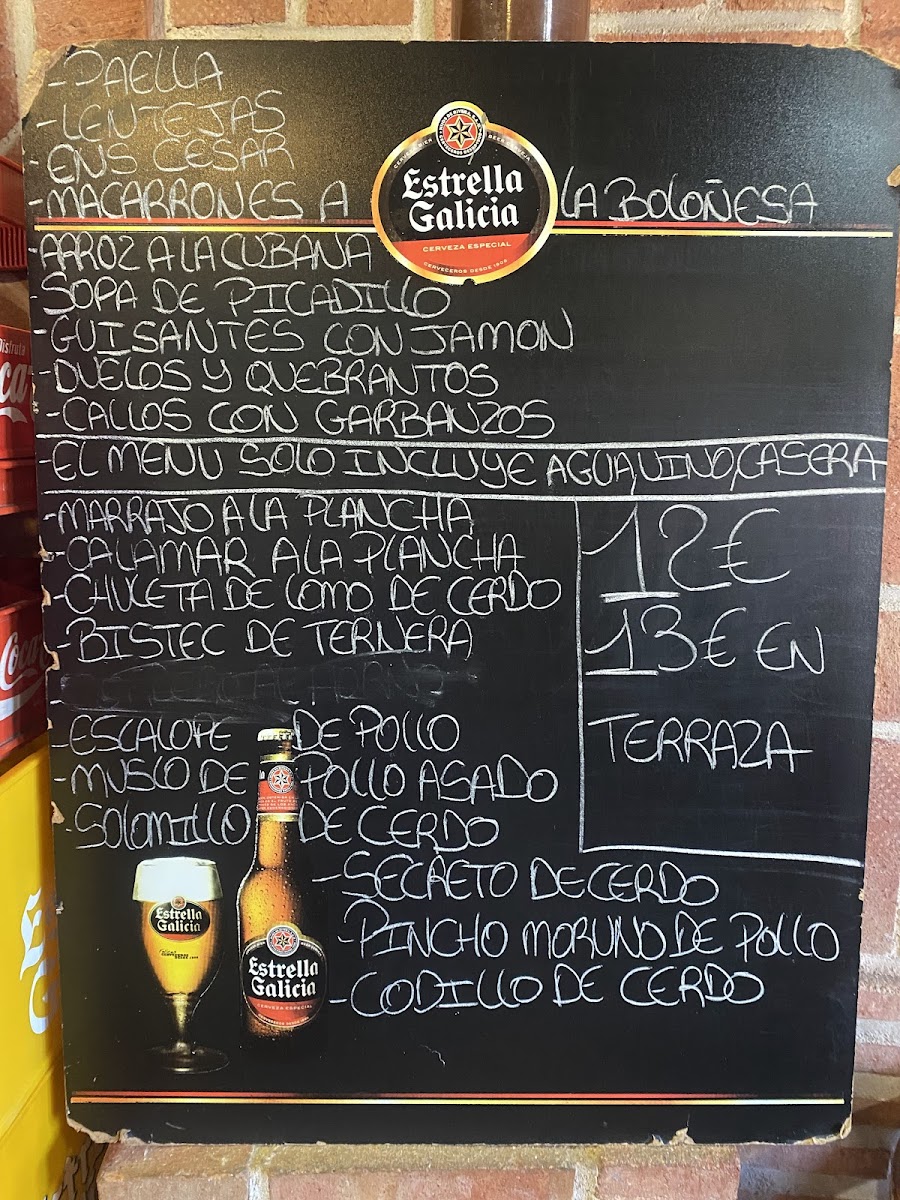 -PAELLA
-LENTEJAS
-ENS CESAR
-MACARRONES A LA BOLOÑESA
Estrella
Galicia
CERVEZA ESPECIAL
CERVECEROS DESDE 1906
-ARROZ A LA CUBANA
-SOPA DE PICADILLO
-GUISANTES CON JAMON
-DUELOS Y QUEBRANTOS
-CALLOS CON GARBANZOS
-EL MENU SOLO INCLUYE AGUA,VINO,CASERA
-MARRAJO A LA PLANCHA
-CALAMAR A LA PLANCHA
-CHULETA DE LOMO DE CERDO
-BISTEC DE TERNERA
12€
13€ EN
TERRAZA
-ESCALOPE DE POLLO
-MUSLO DE POLLO ASADO
-SOLOMILLO DE CERDO
-SECRETO DE CERDO
-PINCHO MORUNO DE POLLO
-CODILLO DE CERDO
Estrella
Galicia
Estrella
Galicia
CERVEZA ESPECIAL
Disfruta
Coca